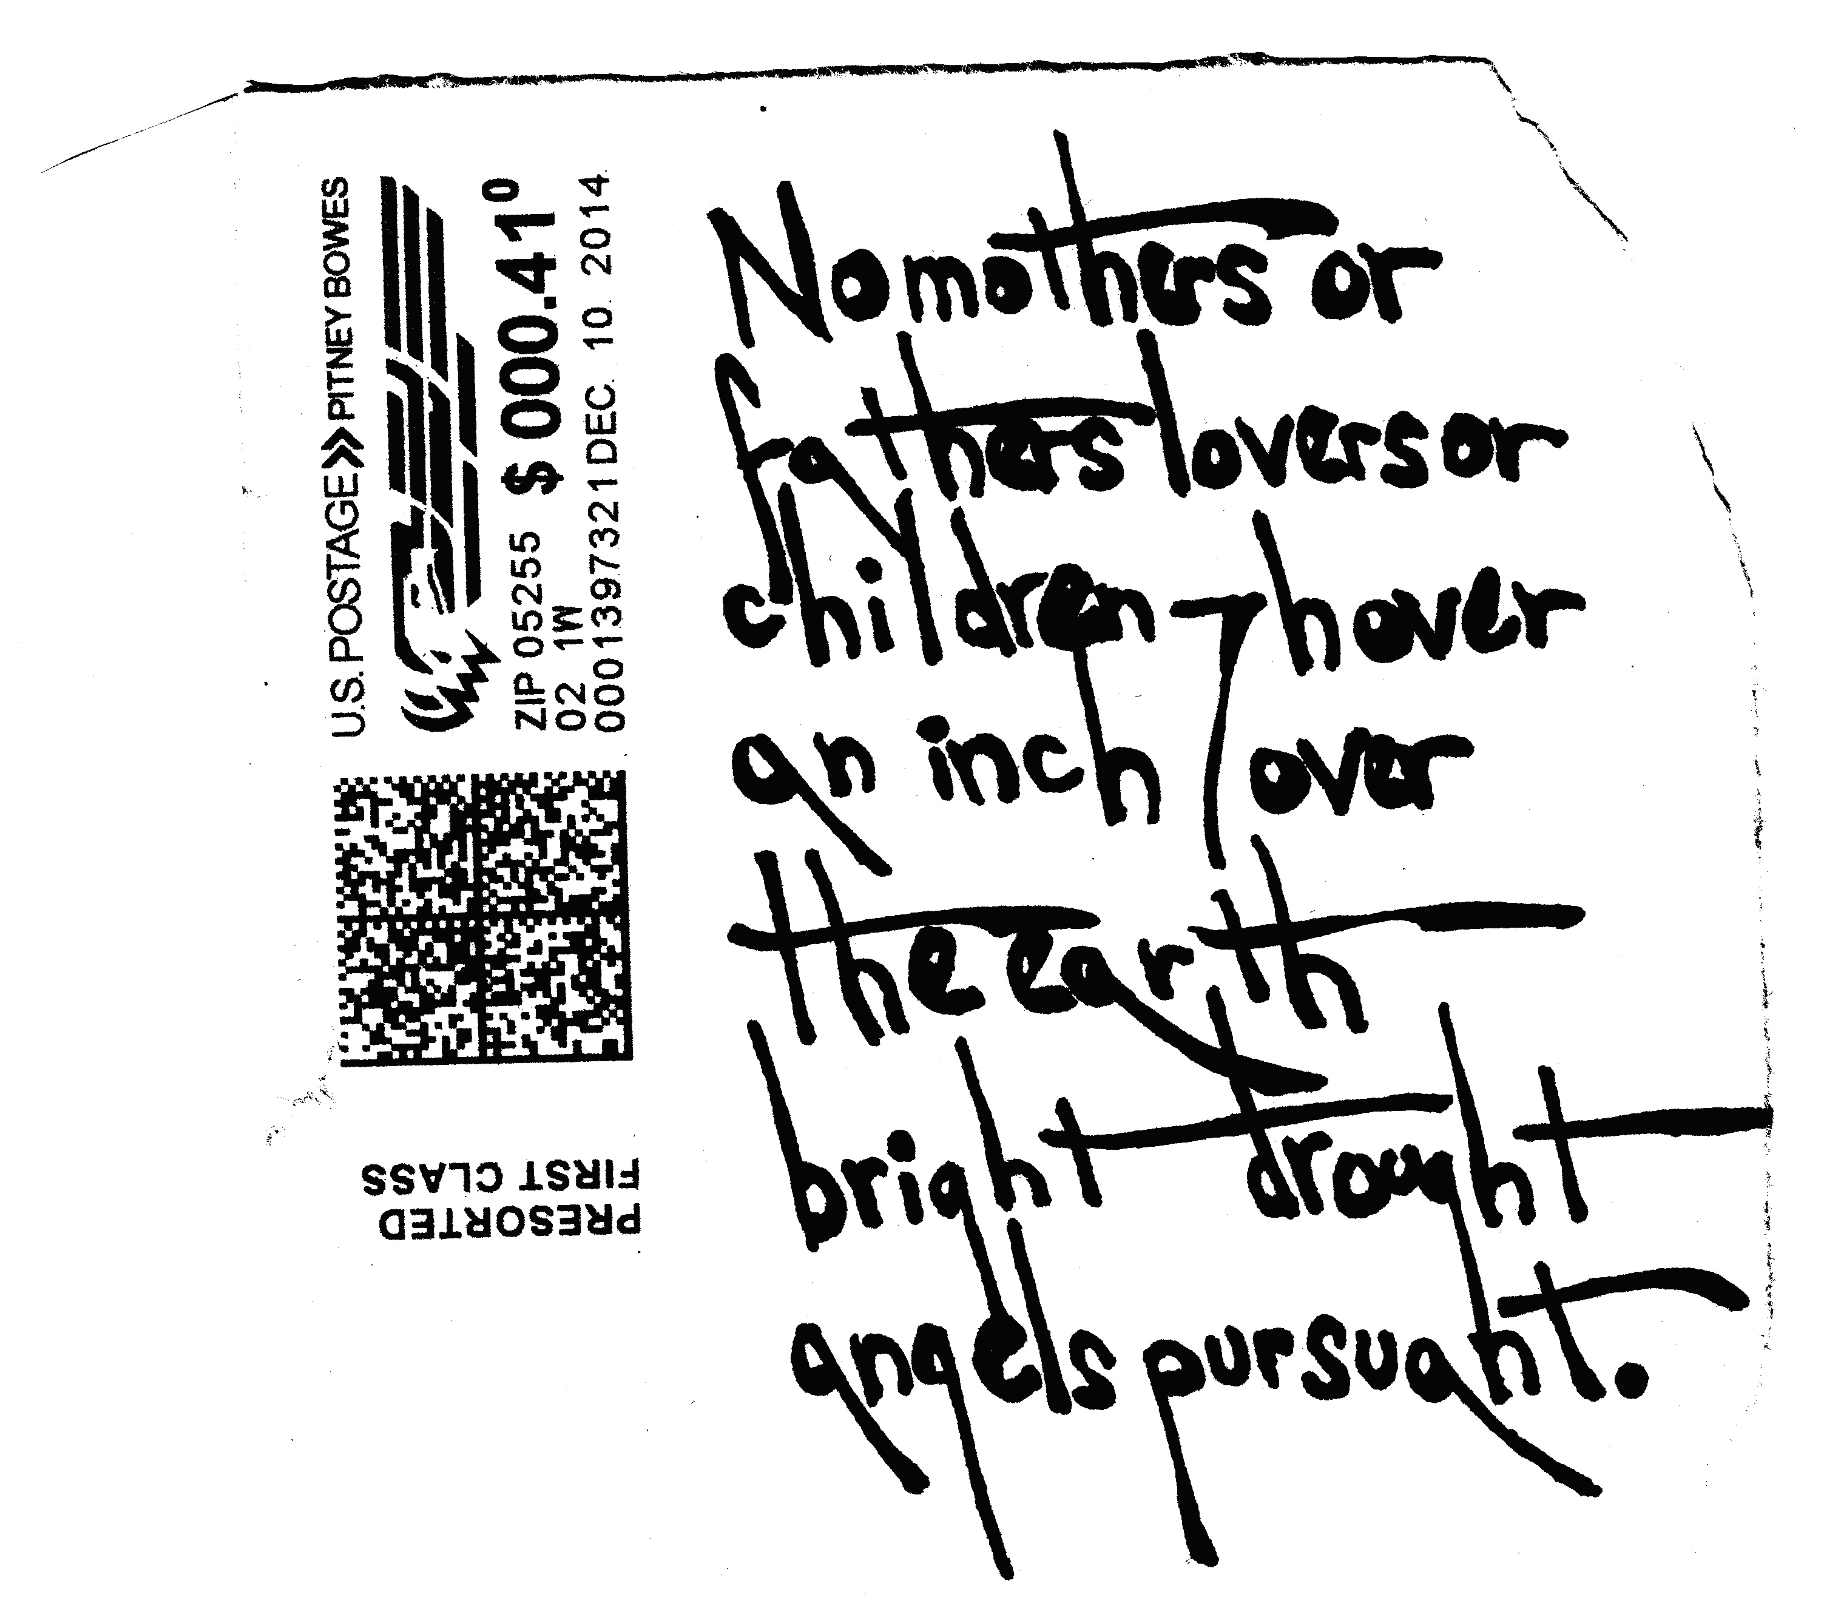 U.S. POSTAGE >> PITNEY BOWES
ZIP 05255 $ 000.41⁰
02 1W
0001397321 DEC. 10. 2014
PRESORTED
FIRST CLASS
No mothers or
fathers lovers or
children – I hover
an inch over
the earth
bright drought
angels pursuant.